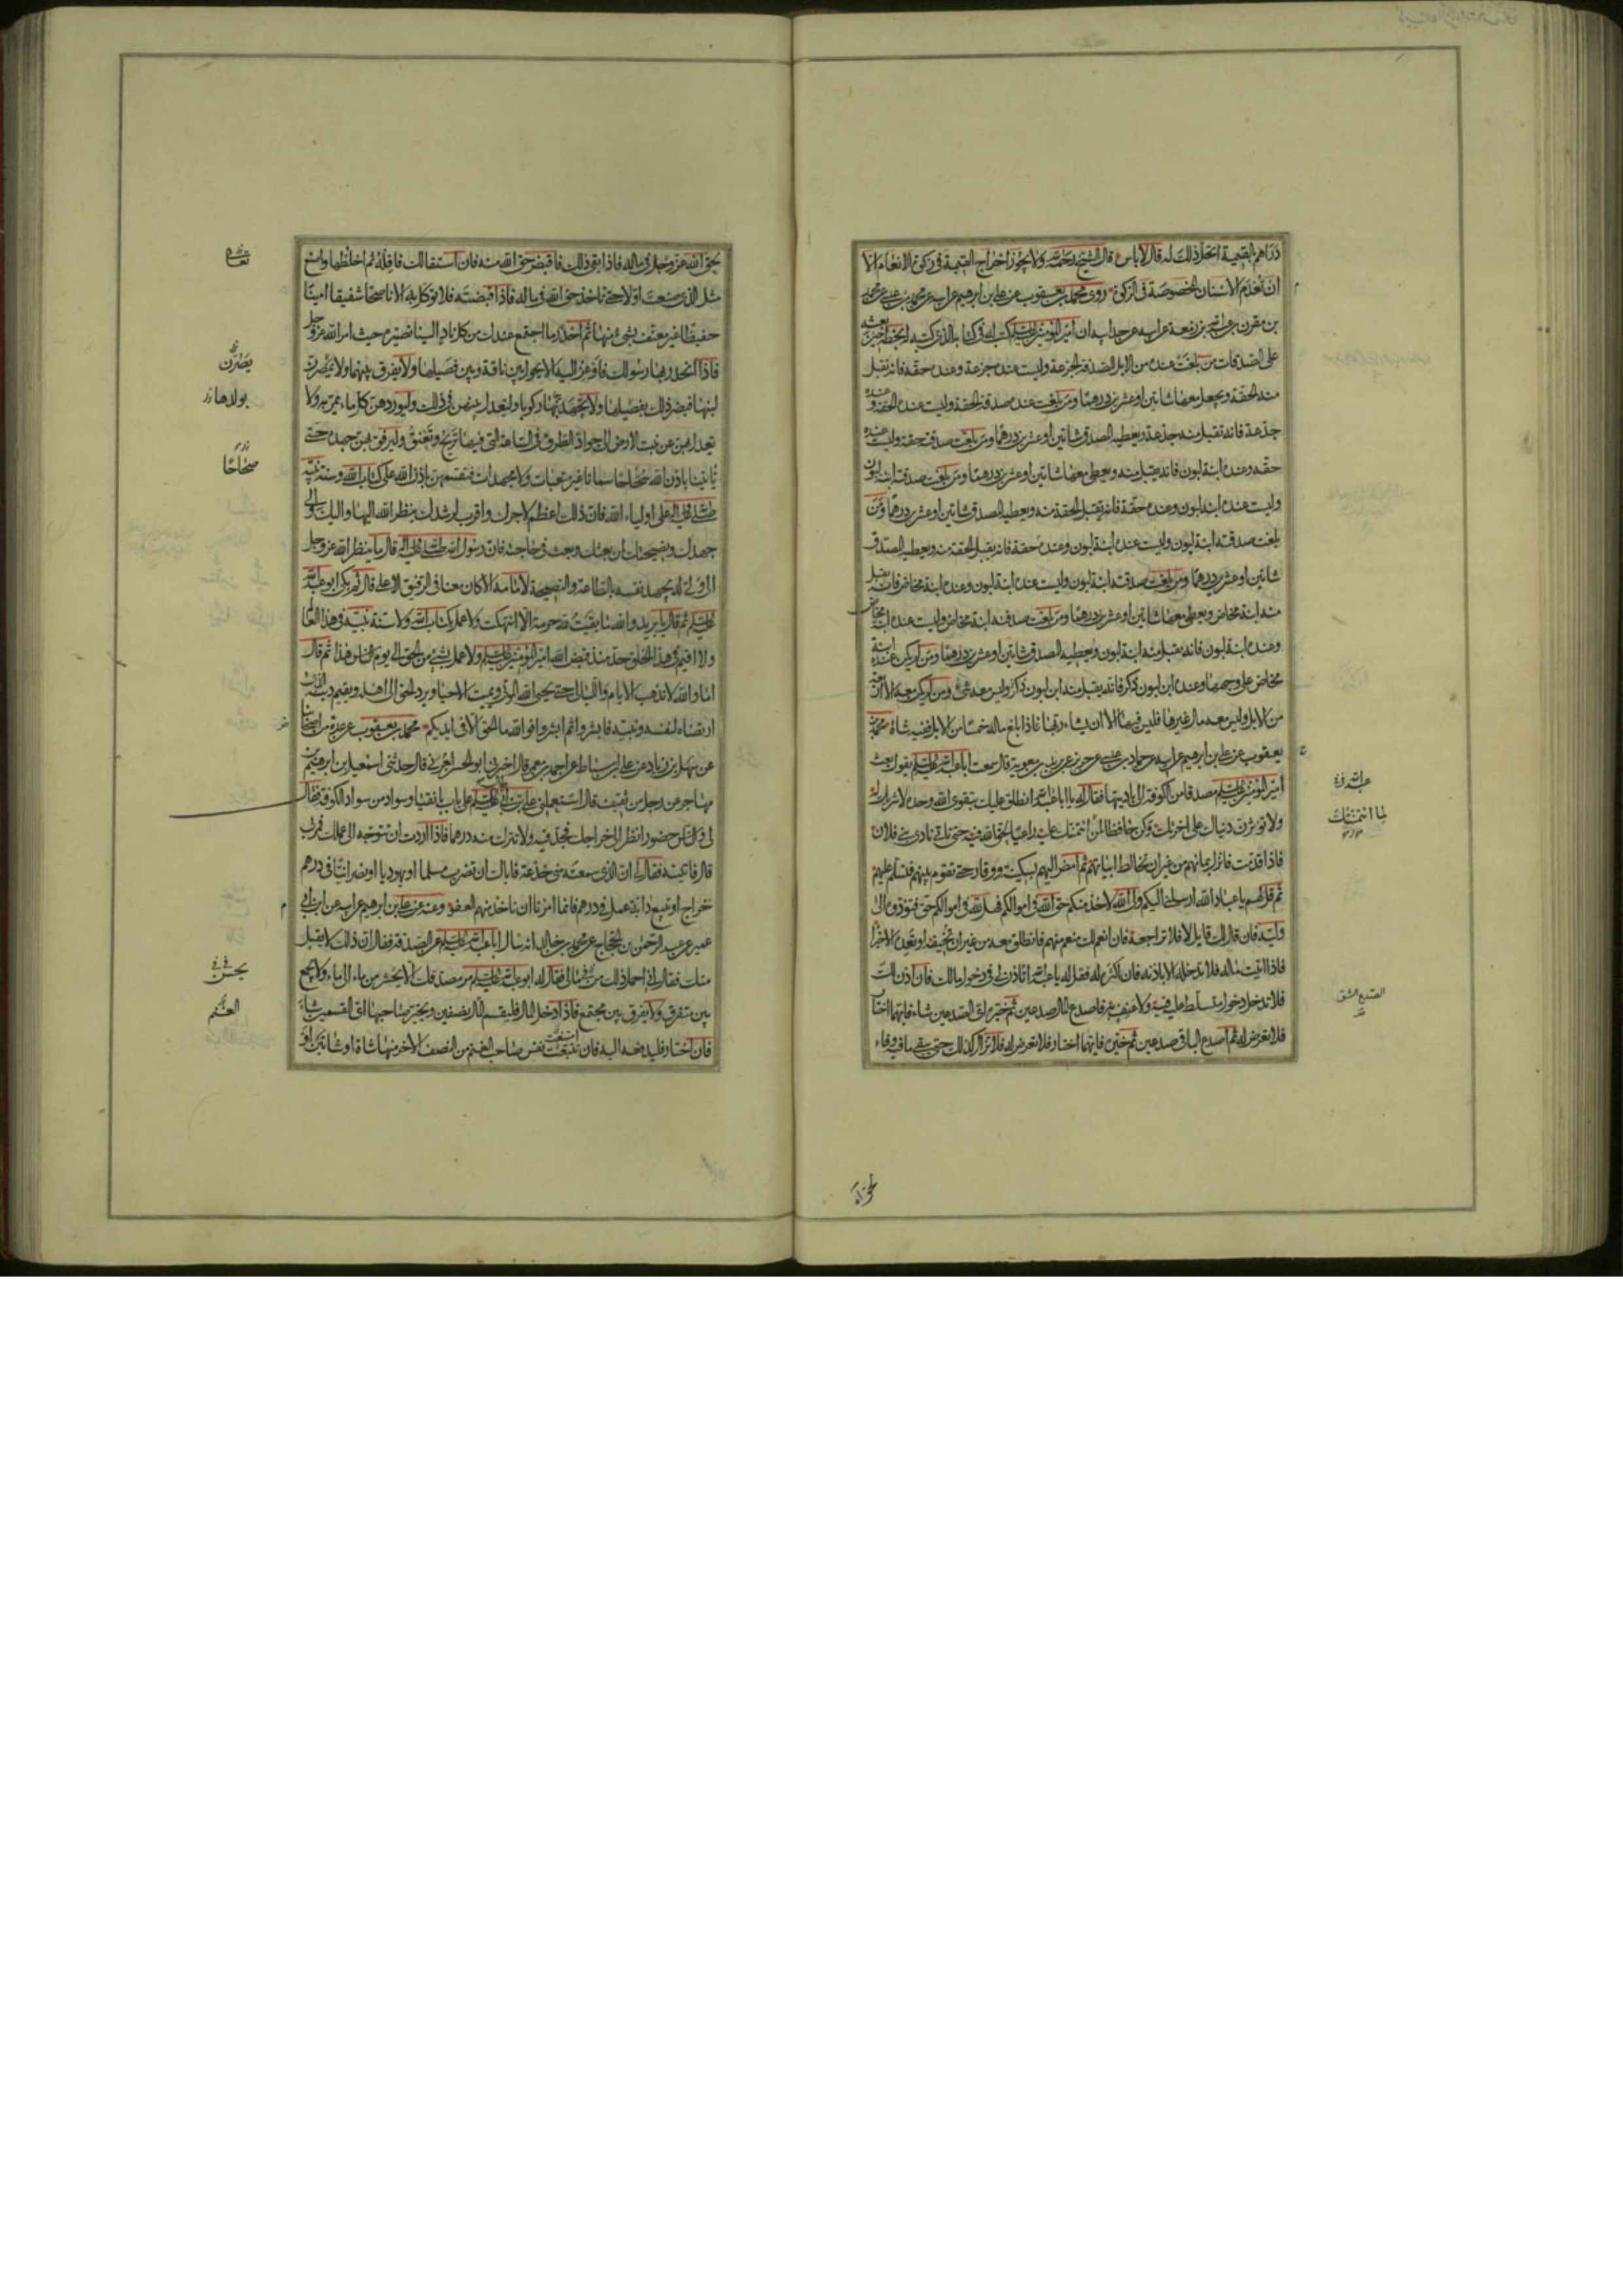 دراهم القيمة ايحل ذلك له قال لا باس قال الشيخ رحمه الله ولا يجوز اخراج القيمة في زكوة الانعام الا
ان تعدم الاسنان المخصوصة في الزكوة روى محمد بن يعقوب عن علي بن ابرهيم عن ابيه عن محمد بن عيسى عن محمد
بن مقرن بن عبد الله بن زمعة عن ابيه عن جد ابيه ان امير المؤمنين عليه السلم كتب له في كتابه الذي كتب له بخطه حين بعثه
على الصدقات من بلغت عنده من الابل الصدقة الجذعة وليست عنده جذعة وعنده حقة فانه تقبل
منه الحقة ويجعل معها شاتين او عشرين درهما ومن بلغت عنده صدقة الحقة وليست عنده الحقة وعنده
جذعة فانه تقبل منه جذعة ويعطيه المصدق شاتين او عشرين درهما ومن بلغت صدقته حقة وليست عنده
حقه وعنده ابنة لبون فانه يقبل منه ويعطى معها شاتين او عشرين درهما ومن بلغت صدقته ابنة لبون
وليست عنده ابنة لبون وعنده حقة فانه يقبل الحقة منه ويعطيه المصدق شاتين او عشرين درهما ومن
بلغت صدقته ابنة لبون وليست عنده ابنة لبون وعنده حقة فانه يقبل الحقة منه ويعطيه المصدق
شاتين او عشرين درهما ومن بلغت صدقته ابنة لبون وليست عنده ابنة لبون وعنده ابنة مخاض فانه يقبل
منه ابنة مخاض ويعطى معها شاتين او عشرين درهما ومن بلغت صدقته ابنة مخاض وليست عنده ابنة مخاض
وعنده ابنة لبون فانه يقبل منه ابنة لبون ويعطيه المصدق شاتين او عشرين درهما ومن لم يكن عنده ابنة
مخاض على وجهها وعنده ابن لبون ذكر فانه يقبل منه ابن لبون ذكر وليس معه شئ ومن لم يكن معه الا اربعة
من الابل وليس معه مال غيرها فليس فيها الا ان يشاء ربها فاذا بلغ ماله خمسا من الابل ففيه شاة محمد بن
يعقوب عن علي بن ابرهيم عن ابيه عن حماد بن عيسى عن حريز عن بريد بن معوية قال سمعت ابا عبد الله عليه السلم يقول بعث
امير المؤمنين عليه السلم مصدقا من الكوفة الى باديتها فقال له يا عبد الله انطلق عليك بتقوى الله وحده لا شريك له
ولا تؤثرن دنياك على اخرتك وكن حافظا لمن ائتمنتك عليه راعيا لحق الله فيه حتى تاتي نادي بني فلان
فاذا قدمت فانزل بمائهم من غير ان تخالط ابياتهم ثم امض اليهم بسكينة ووقار حتى تقوم بينهم فتسلم عليهم
ثم قل لهم يا عباد الله ارسلني اليكم ولي الله لاخذ منكم حق الله في اموالكم فهل لله في اموالكم حق فتؤدوه الى
وليه فان قال لك قايل لا فلا تراجعه فان انعم لك منعم منهم فانطلق معه من غير ان تخيفه او تعده الا خيرا
فاذا اتيت ماله فلا تدخله الا باذنه فان اكثره له فقل له يا عبد الله اتاذن لي في دخول مالك فان اذن لك
فلا تدخل دخول متسلط عليه فيه ولا عنيف به فاصدع المال صدعين ثم خيره اي الصدعين شاء فايهما اختار
فلا تعرض له ثم اصدع الباقي صدعين ثم خيره فايهما اختار فلا تعرض له فلا تزال كذلك حتى يبقى ما فيه وفاء
لما ائتمنتك
الصدع الشق
لحق الله
بحق الله عز وجل في ماله فاذا بقي ذلك فاقبض حق الله منه فان استقالك فاقله ثم اخلطها واصنع
مثل الذي صنعت اولا حتى تاخذ حق الله في ماله فاذا قبضته فلا توكل به الا ناصحا شفيقا امينا
حفيظا غير معنف بشئ منها ثم احدر ما اجتمع عندك من كل ناد الينا نصيره حيث امر الله عز وجل
فاذا انحدر بها رسولك فاوعز اليه الا يحول بين ناقة وبين فصيلها ولا يفرق بينهما ولا يمصرن
لبنها فيضر ذلك بفصيلها ولا يجهد بها ركوبا وليعدل بينهن في ذلك وليوردهن كل ماء يمر به ولا
يعدل بهن عن نبت الارض الى جواد الطرق في الساعة التي فيها تريح وتغبق وليرفق بهن جهده حتى
تاتينا باذن الله سحاحا سمانا غير متعبات ولا مجهدات فنقسمهن باذن الله على كتاب الله وسنة نبيه
صلى الله عليه واله على اولياء الله فان ذلك اعظم لاجرك واقرب لرشدك ينظر الله اليها واليك والى
جهدك ونصيحتك لمن بعثك وبعثت في حاجته فان رسول الله صلى الله عليه واله قال ما ينظر الله عز وجل
الى ولي له يجهد نفسه بالطاعة والنصيحة لامامه الا كان معنا في الرفيق الاعلى قال ثم بكى ابو عبد الله
عليه السلم ثم قال يا بريد والله ما بقيت لله حرمة الا انتهكت ولا عمل بكتاب الله ولا سنة نبيه في هذا العالم
ولا اقيم في هذا الخلق حد منذ قبض الله امير المؤمنين عليه السلم ولا عمل بشئ من الحق الى يوم الناس هذا ثم قال
اما والله لا تذهب الايام والليالي حتى يحيى الله الموتى ويميت الاحياء ويرد الحق الى اهله ويقيم دينه الذي
ارتضاه لنفسه ونبيه فابشروا ثم ابشروا فوالله ما الحق الا في ايديكم محمد بن يعقوب عن عدة من اصحابنا
عن سهل بن زياد عن علي بن اسباط عن احمد بن معمر قال اخبرني ابو الحسن العرني قال حدثني اسمعيل بن ابرهيم بن
مهاجر عن رجل من ثقيف قال استعملني علي بن ابي طالب عليه السلم على بانقيا وسواد من سواد الكوفة فقال
لي والناس حضور انظر الى خراجك فجد فيه ولا تترك منه درهما فاذا اردت ان تتوجه الى عملك فمر بي
قال فاتيته فقال لي ان الذي سمعته مني خدعة فاياك ان تضرب مسلما او يهوديا او نصرانيا في درهم
خراج او تبيع دابة عمل في درهم فانما امرنا ان ناخذ منهم العفو وعنه عن علي بن ابرهيم عن ابيه عن ابن ابي
عمير عن عبد الرحمن بن الحجاج عن محمد بن خالد انه سال ابا عبد الله عليه السلم عن الصدقة فقال ان ذلك لا يقبل
منك فقال اني احمل ذلك في مالي فقال له ابو عبد الله عليه السلم مر مصدقك الا يحشر من ماء الى ماء ولا يجمع
بين متفرق ولا يفرق بين مجتمع فاذا دخل المال فليقسم المال نصفين ويخير صاحبها اي القسمين شاء
فان اختار فليدفعه اليه فان تتبعت نفس صاحب الغنم من النصف الاخر منها شاة او شاتين او
يضرن
بولدها
صحاحا
الغنم